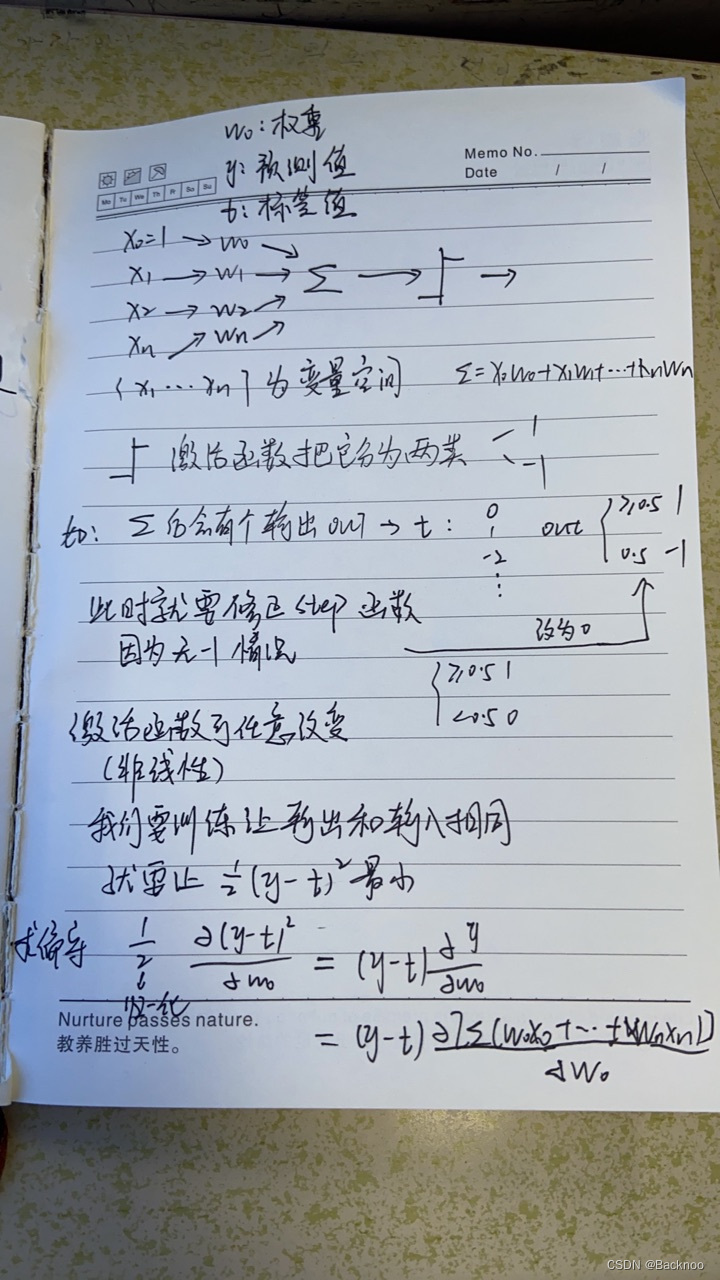 w₀:权重
y:预测值
t:标签值
Memo No.
Date / /
Mo Tu We Th Fr Sa Su
x₀=1 → w₀ →
x₁ → w₁ → Σ → →
x₂ → w₂ →
xₙ → wₙ →
{x₁…xₙ}为变量空间 Σ=x₀w₀+x₁w₁+…+xₙwₙ
激活函数把它分为两类 1
-1
Σ 仍会有个输出 out → t: 0 out { ≥0.5 1
1
-2 0.5 -1
⋮
此时就要修正 step 函数
改为0
因为无-1情况
{ ≥0.5 1
<0.5 0
激活函数可任意改变
(非线性)
我们要训练让输出和输入相同
就要让 ½(y-t)² 最小
求偏导 1/2 ∂(y-t)²/∂w₀ = (y-t) ∂y/∂w₀
归一化
Nurture passes nature.
教养胜过天性。
= (y-t) ∂[Σ(w₀x₀+…+wₙxₙ)]/∂w₀
CSDN @Backnoo